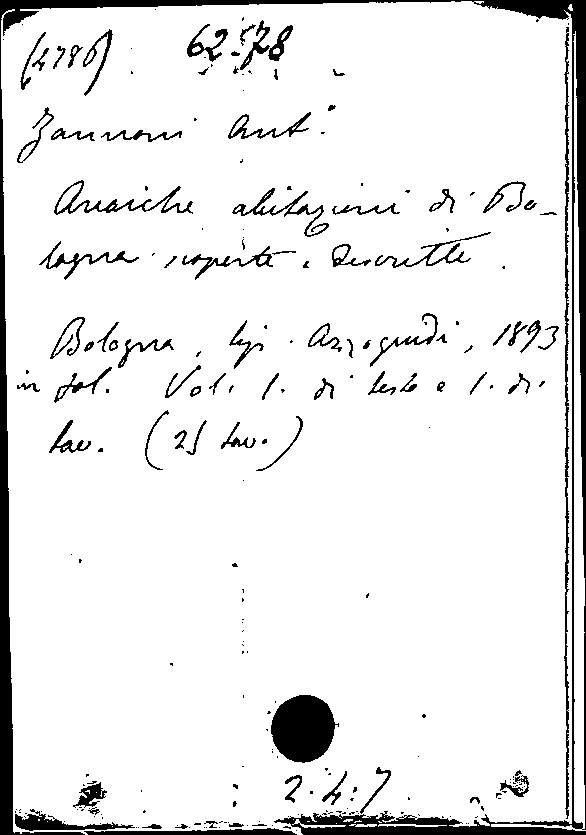 (4786) 62-78
Zannoni Ant.º
Arcaiche abitazioni di Bo-
logna scoperte e descritte.
Bologna, tip. Azzoguidi, 1893
in fol. Vol. 1. di testo e 1. di
tav. (25 tav.)
2.4:7